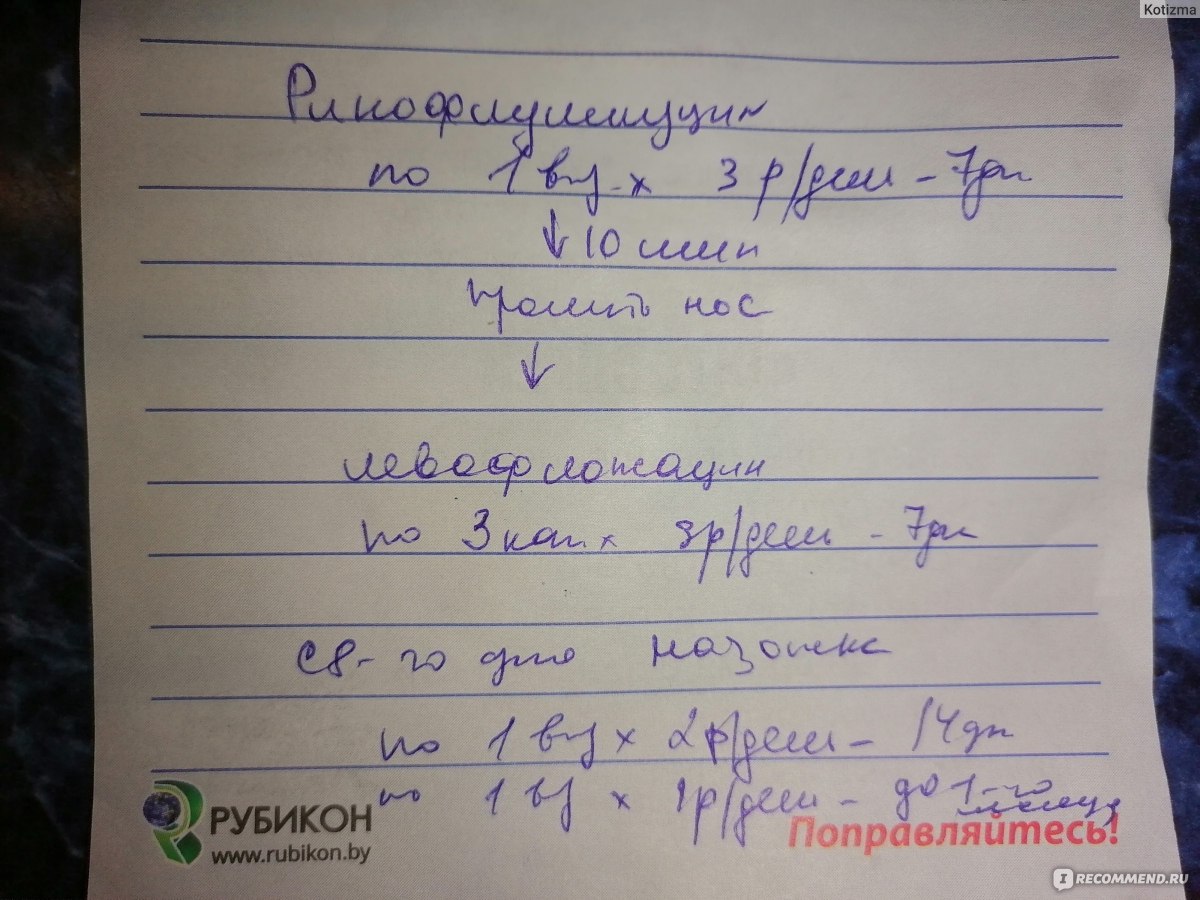 Kotizma
Ринофлуимуцин
по 1 вп. x 3 р/день - 7дн
↓ 10 мин
промыть нос
↓
левофлоксацин
по 3 кап x 3р/день - 7дн
с 8-го дня назонекс
по 1 вп x 2 р/день - 14дн
по 1 вп x 1р/день - до 1-го
месяца
РУБИКОН
www.rubikon.by
Поправляйтесь!
IRECOMMEND.RU